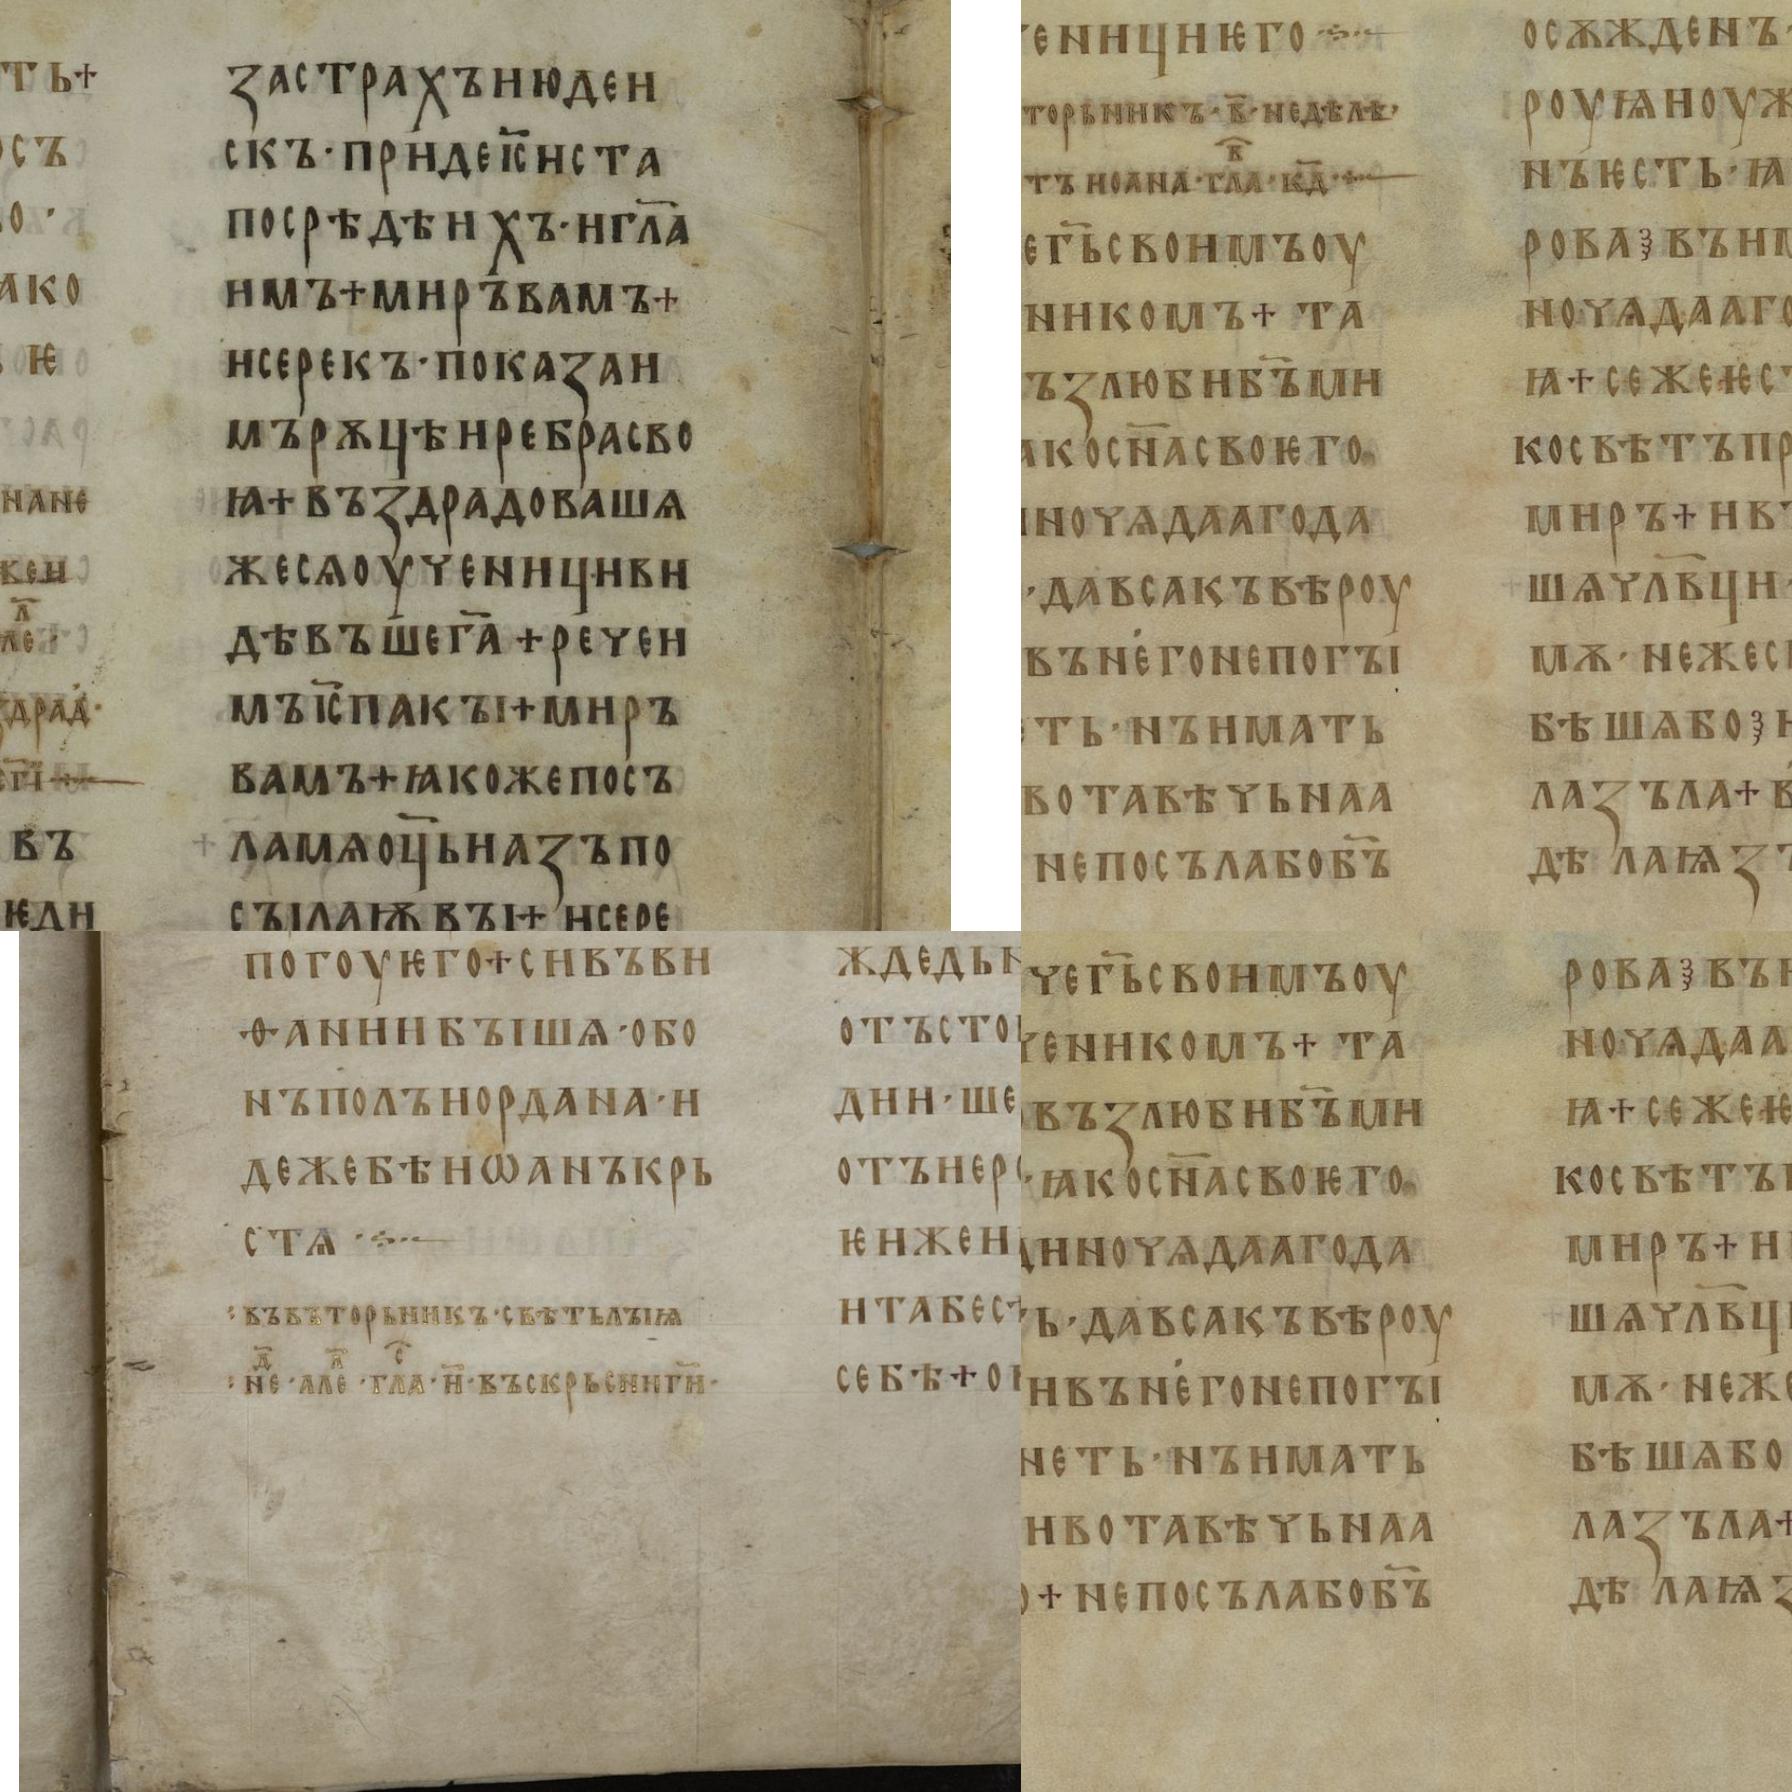 ть+
застрахъиюдеи
съ
скъ·придеі҃систа
во·
посрѣдѣихъ·игл҃а
ако
имъ+миръвамъ+
ѥ
исерекъ·показаи
мърѫцѣиребрасво
ꙗ+въздрадовашѧ
нане
жесѧоученициви
дѣвъшег҃а+речеи
мъі҃спакꙑ+миръ
драд·
вамъ+ꙗкожепосъ
въ
ламѧоц҃ьиазъпо
ѥди
сꙑлаѭвꙑ+исере
енициѥго
торьникъ·в҃·недѣлѣ·
тъиоана·гл҃а·кд҃·
ег҃ьсвоимъоу
никомъ+та
ъзлюбиб҃ъми
акосн҃асвоѥго
иночѧдаагода
·давсакъвѣроу
вън́егонепогꙑ
ть·нъимать
вотавѣчьнаа
непосълабоб҃ъ
осѫжденъ·
роуѩиоуж
нъѥсть·ꙗ
роваꙁвъим
ночѧдааго
ꙗ+сежеѥс
косвѣтъпр
миръ+ивъ
шѧчл҃вци·
мѫ·нежес
бѣшѧбоꙁ
лазъла+в
дѣлаꙗз
погоуѥго+сивъви
ѳаниибꙑшѧ·обо
нъполъиордана·и
дежебѣиѡанъкрь
стѧ
въвъторьникъ·свѣтьлꙑѩ
не·але·гла·н҃·въскрьсниги҃·
ждедьн
отъсто
дии·ше
отъиер
ѥижен
итабес
себѣ+ов
чег҃ьсвоимъоу
ченикомъ+та
възлюбиб҃ъми
·ꙗкосн҃асвоѥго
иночѧдаагода
ь·давсакъвѣроу
ивън́егонепогꙑ
неть·нъимать
ивотавѣчьнаа
+непосълабоб҃ъ
роваꙁвъи
ночѧдаа
ꙗ+сежеѥ
косвѣтъ
миръ+и
шѧчл҃вц
мѫ·неже
бѣшѧбо
лазъла+
дѣлаꙗз